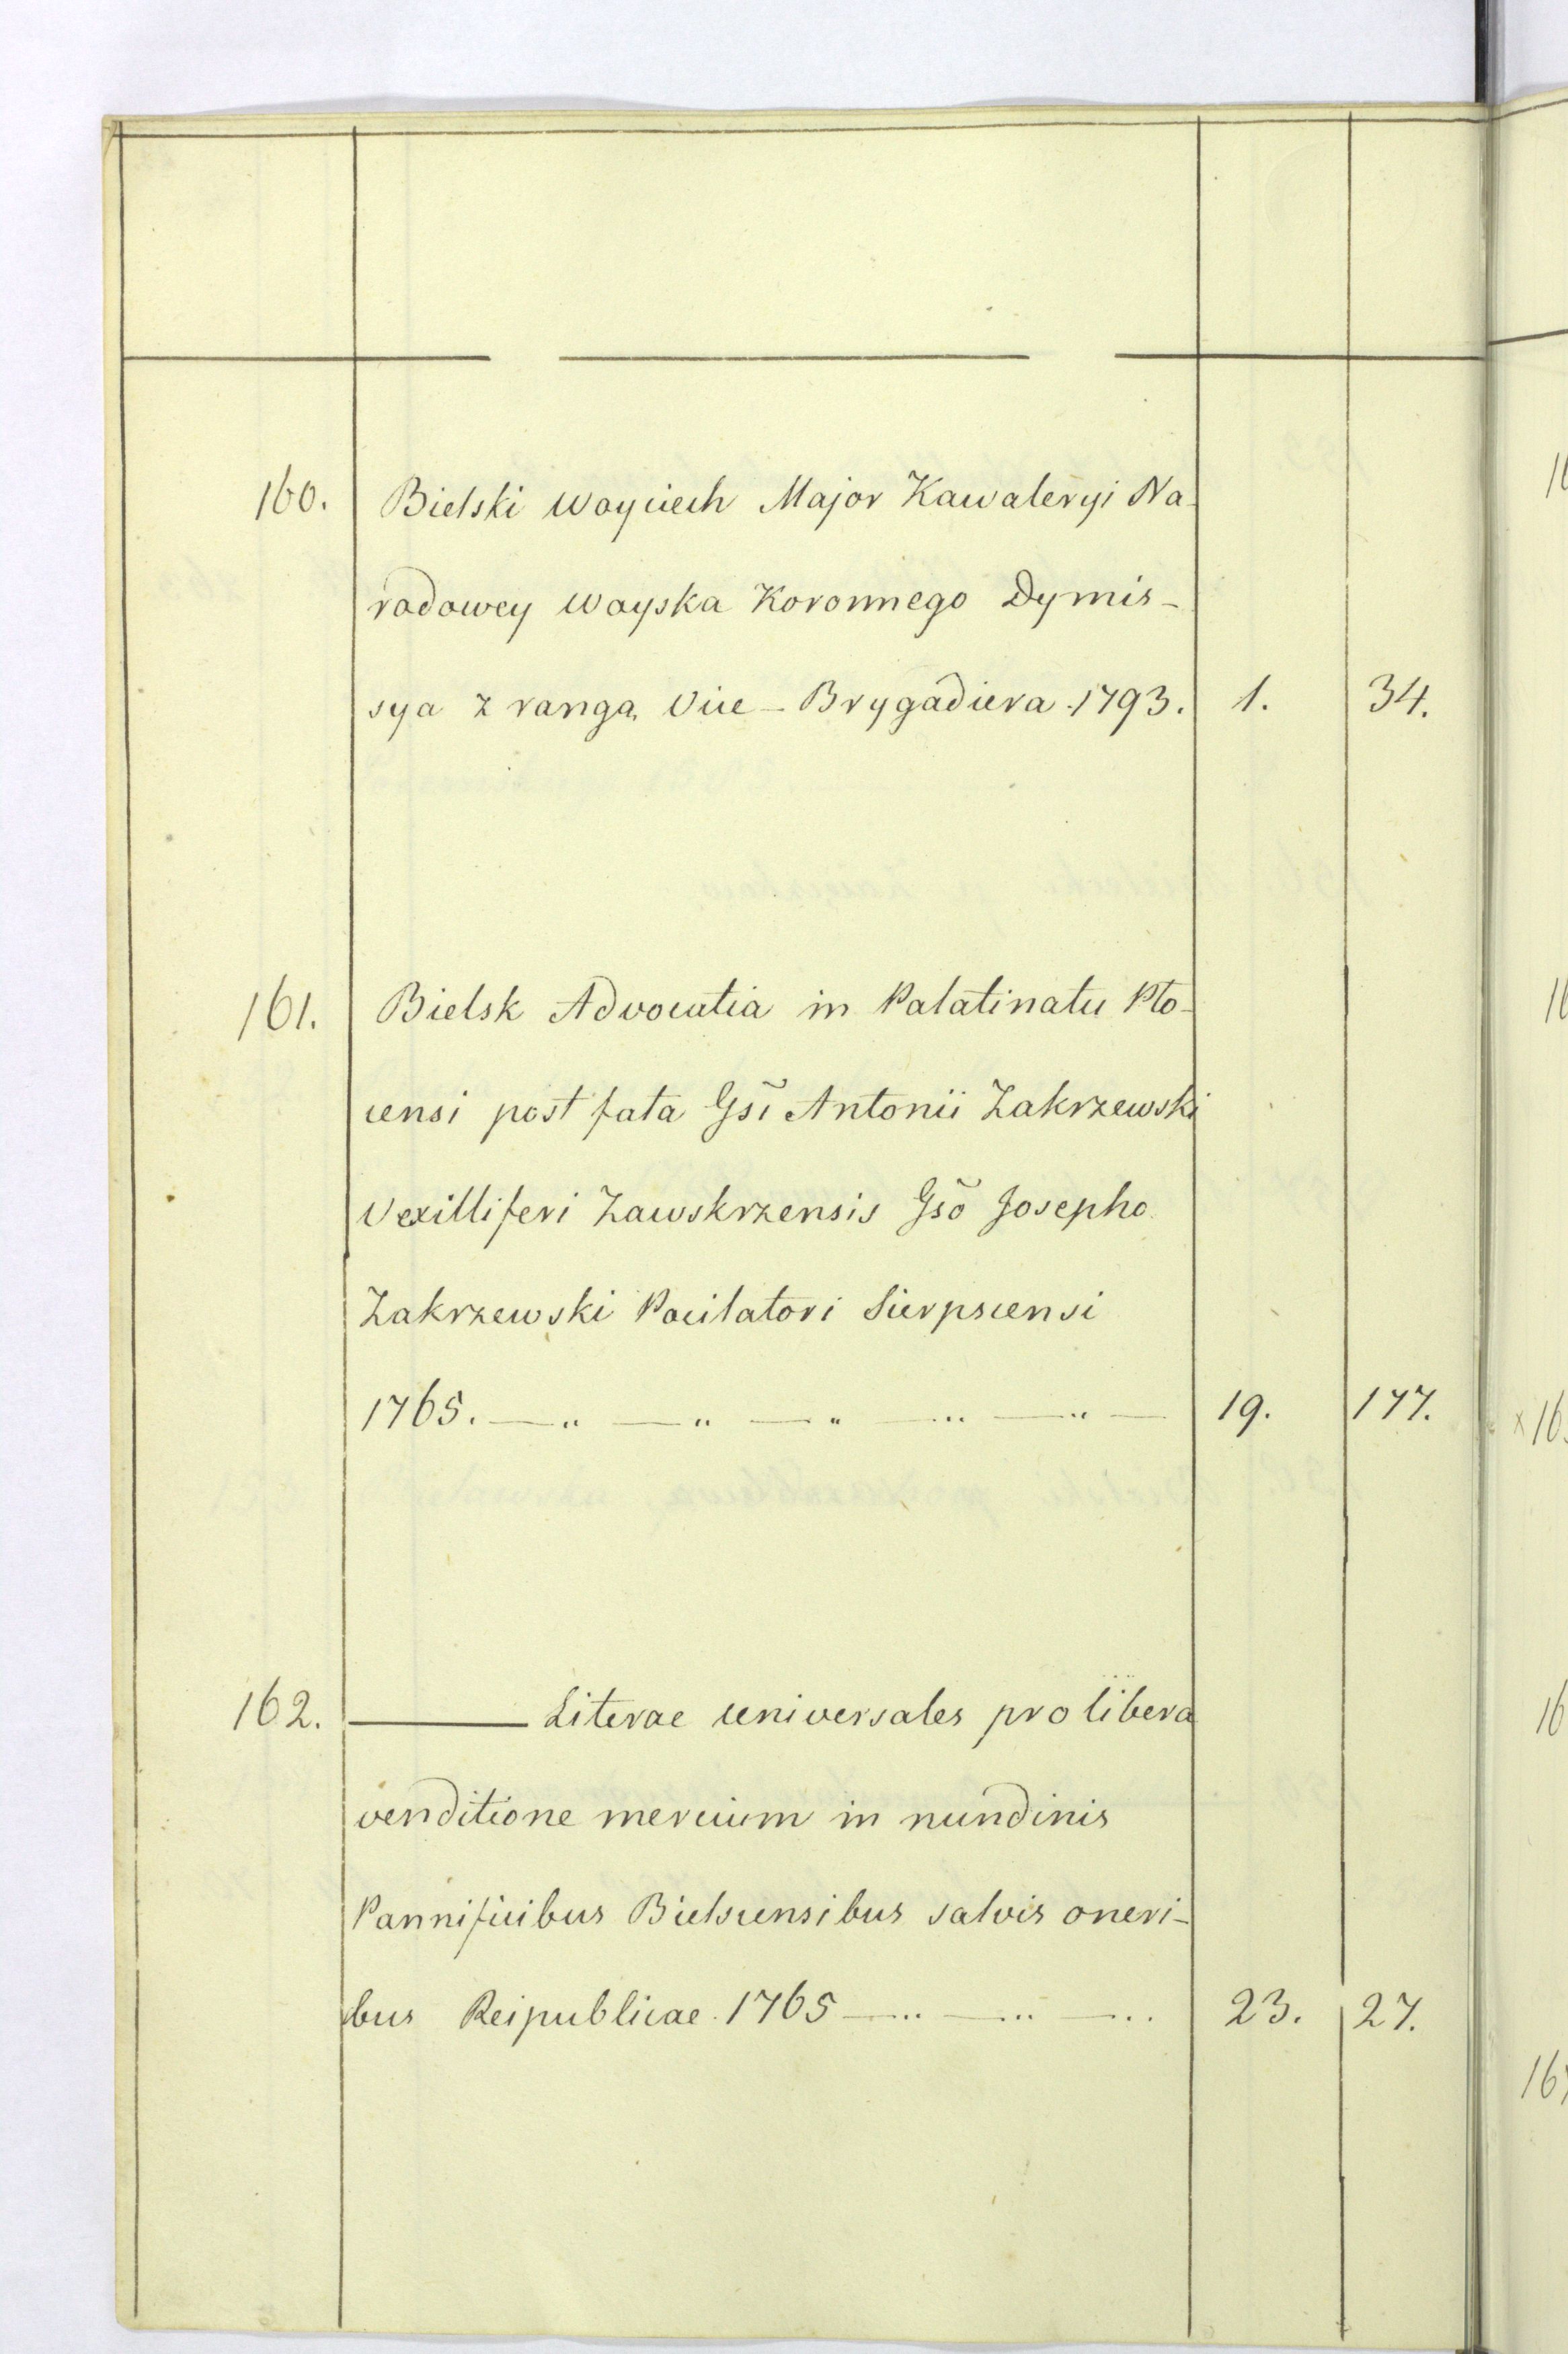 160. Bielski Woyciech Major Kawaleryi Na-
rodowey Woyska Koronnego Dymis-
sya z rangą Vice-Brygadiera 1793. 1. 34.
161. Bielsk Advocatia in Palatinatu Plo-
censi post fata Gsi Antonii Zakrzewski
Vexilliferi Zawskrzensis Gso Josepho
Zakrzewski Pocilatori Sierpscensi
1765. — " — " — " — " — " — 19. 177.
162. ——— Literae universales pro libera
venditione mercium in nundinis
Pannificibus Bielscensibus salvis oneri-
bus Reipublicae 1765 — " — " — " 23. 27.